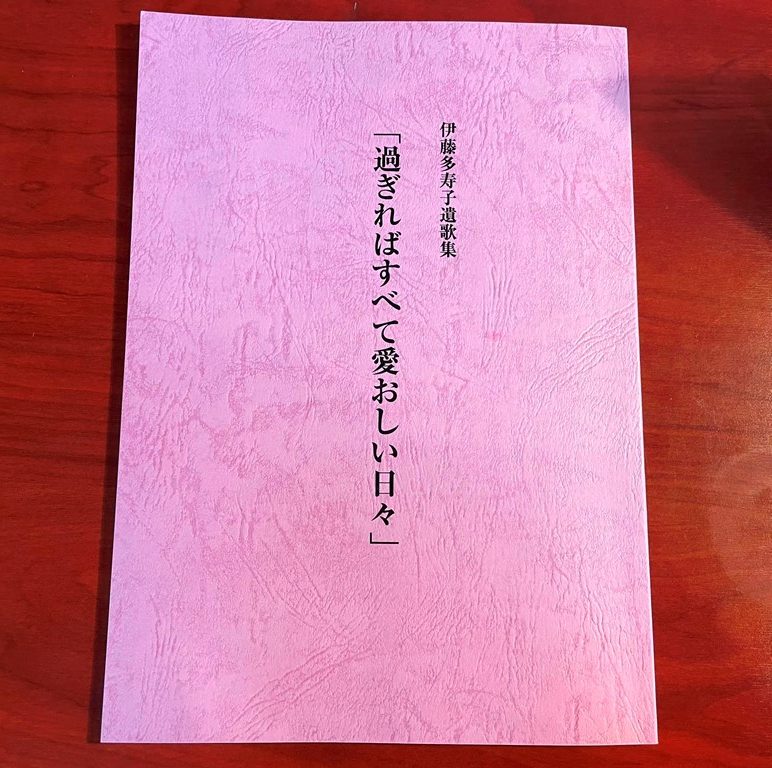 伊藤多寿子遺歌集
「過ぎればすべて愛おしい日々」